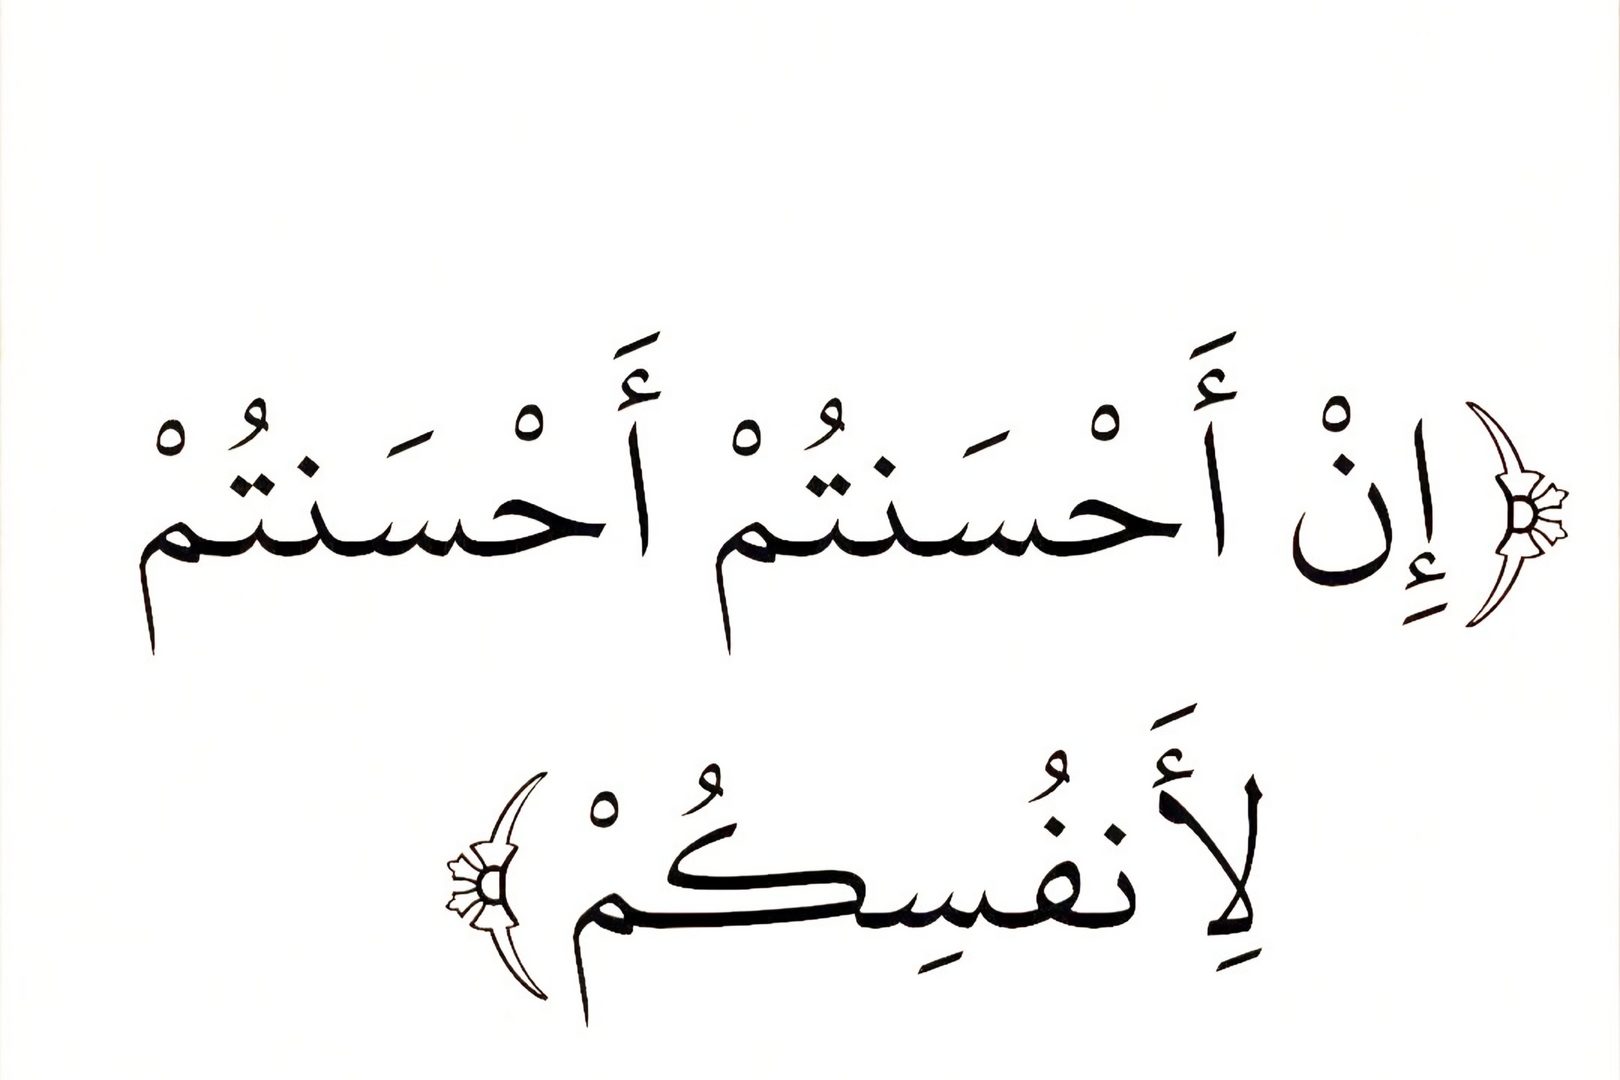 ﴿إِنْ أَحْسَنتُمْ أَحْسَنتُمْ
لِأَنفُسِكُمْ﴾